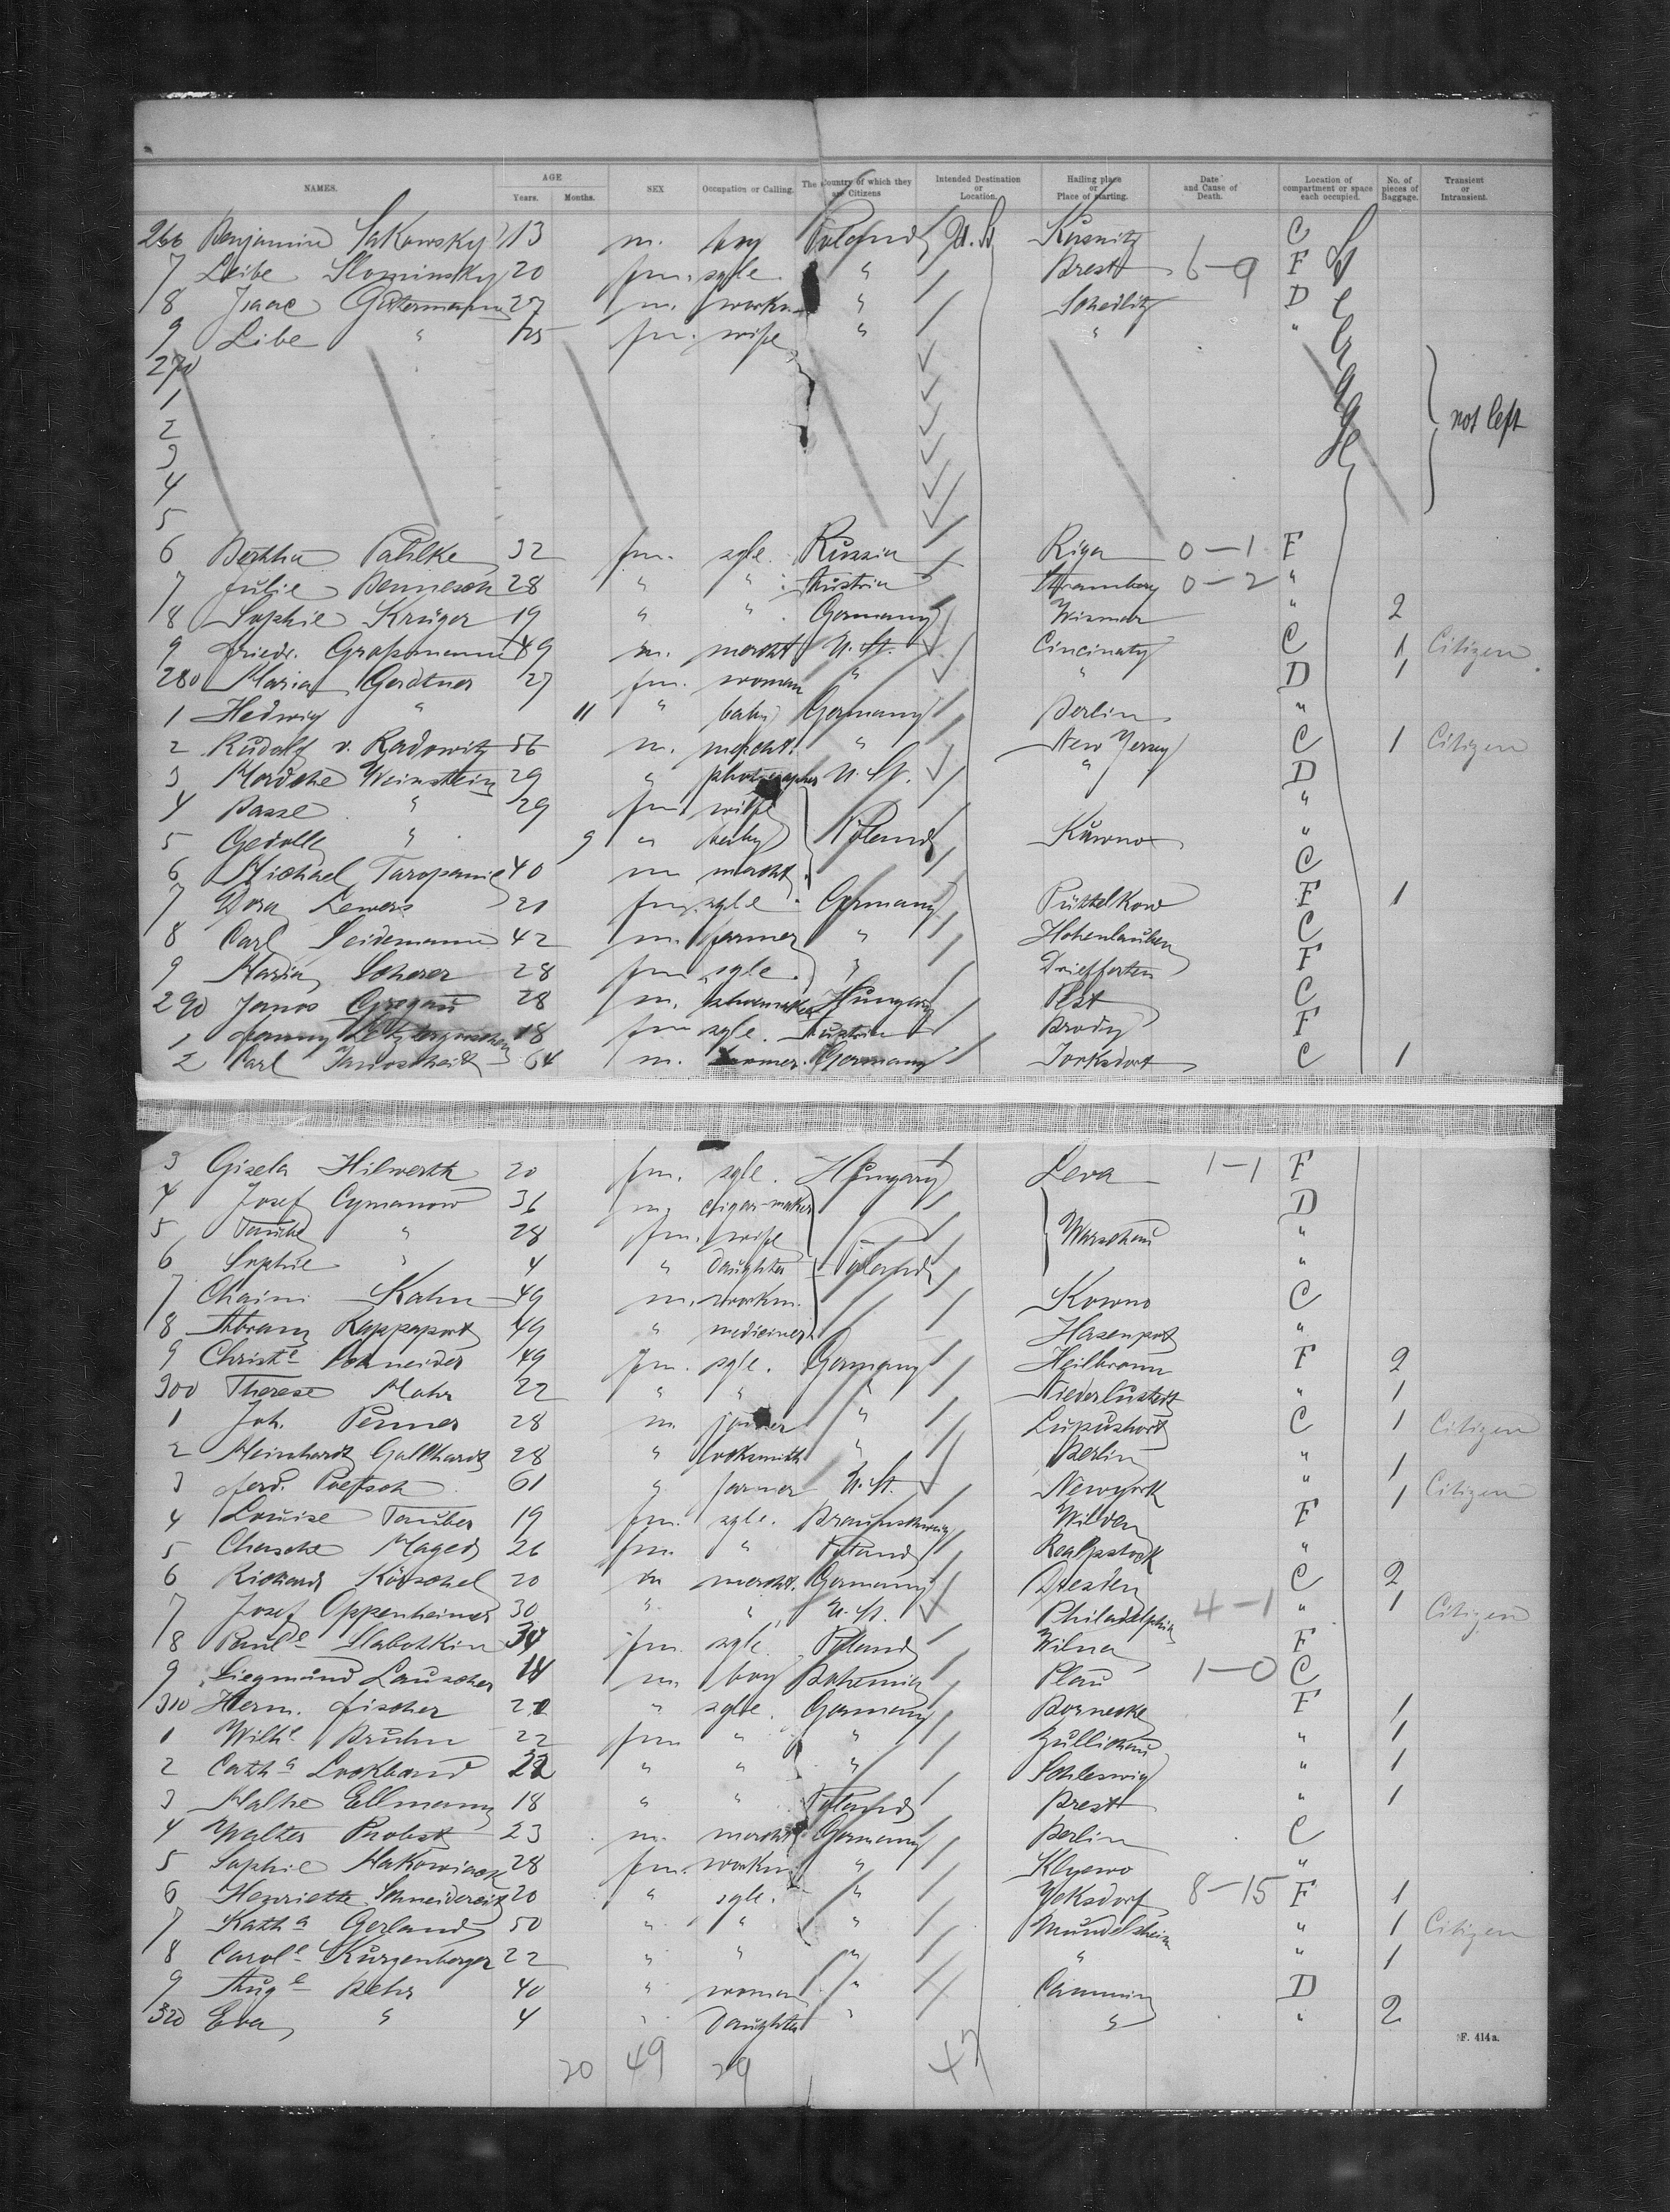 NAMES. AGE Years. Months. SEX Occupation or Calling. The Country of which they are Citizens Intended Destination or Location. Hailing place or Place of starting. Date and Cause of Death. Location of compartment or space each occupied. No. of pieces of Baggage. Transient or Intransient.
266 Benjamin Sakowsky 13 m. boy Poland U. St. Kusnitz C
7 Leibe Slominsky 20 fm. sgle. " Brest 6-9 F
8 Isaac Gutermann 27 m. workm. " D
9 Libe " 25 fm. wife " " "
270
1
2 not left
3
4
5
6 Bertha Pahlke 32 fm. sgle. Russia Riga 0-1 F
7 Julie 28 " " Austria 0-2 "
8 Sophie Krüger 19 " " Germany Wismar " 2
9 Friedr. Großmann 49 m. mercht U. St. Cincinaty C 1 Citizen
280 Maria Gerdtner 27 fm. woman " " D 1
1 Hedwig " 11 " baby Germany Berlin "
2 Rudolf v. Radowitz 56 m. mercht. " New Yersey C 1 Citizen
3 Mordche Weinstein 29 " photographer U. St. " D
4 Basse " 29 fm. wife "
5 " 9 " baby Poland Kowno "
6 Michael 40 m mercht C
7 Dora Lewers 21 fm. sgle Germany F 1
8 Carl Seidemann 42 m. farmer " Hohenlauben C
9 Maria Scherer 28 fm sgle. " F
290 Janos 28 m. Hungary Pest C
1 18 fm sgle. Austria Brody F
2 Carl 64 m. Germany C 1
3 Gisela Hilwerth 20 fm. sgle. Hungary Leva 1-1 F
4 Josef Cymanow 36 m. cigar-maker D
5 " 28 fm. wife Warschau "
6 Sophie " 4 " Daughter Poland "
7 Chaim Kahn 49 m. workm. Kowno C
8 Abram Rappaport 49 " mediciner Hasenpot "
9 Christe Schneider 49 fm. sgle. Germany Heilbronn F 2
300 Therese Mahr 22 " " " " 1
1 Joh. Penner 28 m. " C 1 Citizen
2 Meinhardt Gallhardt 28 " locksmith " Berlin " 1
3 Ferd. 61 " farmer U. St. Newyork " 1 Citizen
4 Louise Tauber 19 fm. sgle. Braunschweig F
5 Chasche Maged 26 fm. " Poland "
6 Richard Körschel 20 m mercht. Germany Dresden C 2
7 Josef Oppenheimer 30 " " U. St. Philadelphia 4-1 " 1 Citizen
8 Paule Slabotkin fm. sgle Poland Wilna F
9 Siegmund Lauscher 14 m. boy Bohemia Plau 1-0 C
310 Herm. Fischer " sgle. Germany Bornecke F 1
1 Wilhe Bruhn 22 fm " " Züllichau " 1
2 Catha Lookband 22 " " " Schleswig " 1
3 Malke Ellmann 18 " " Poland Brest " 1
4 Walter Probst 23 m. mercht Germany Berlin C
5 Sophie 28 fm. workm. " "
6 Henriette Schneidereit 20 " sgle. " 8-15 F 1
7 Katha Gerland 50 " " " Mundelsheim " 1 Citizen
8 Carole Kurzenberger 22 " " " " " 1
9 Auge Behr 40 " woman " Cammin D
320 Eva " 4 " Daughter " " " 2
20 49 29 47
F. 414a.